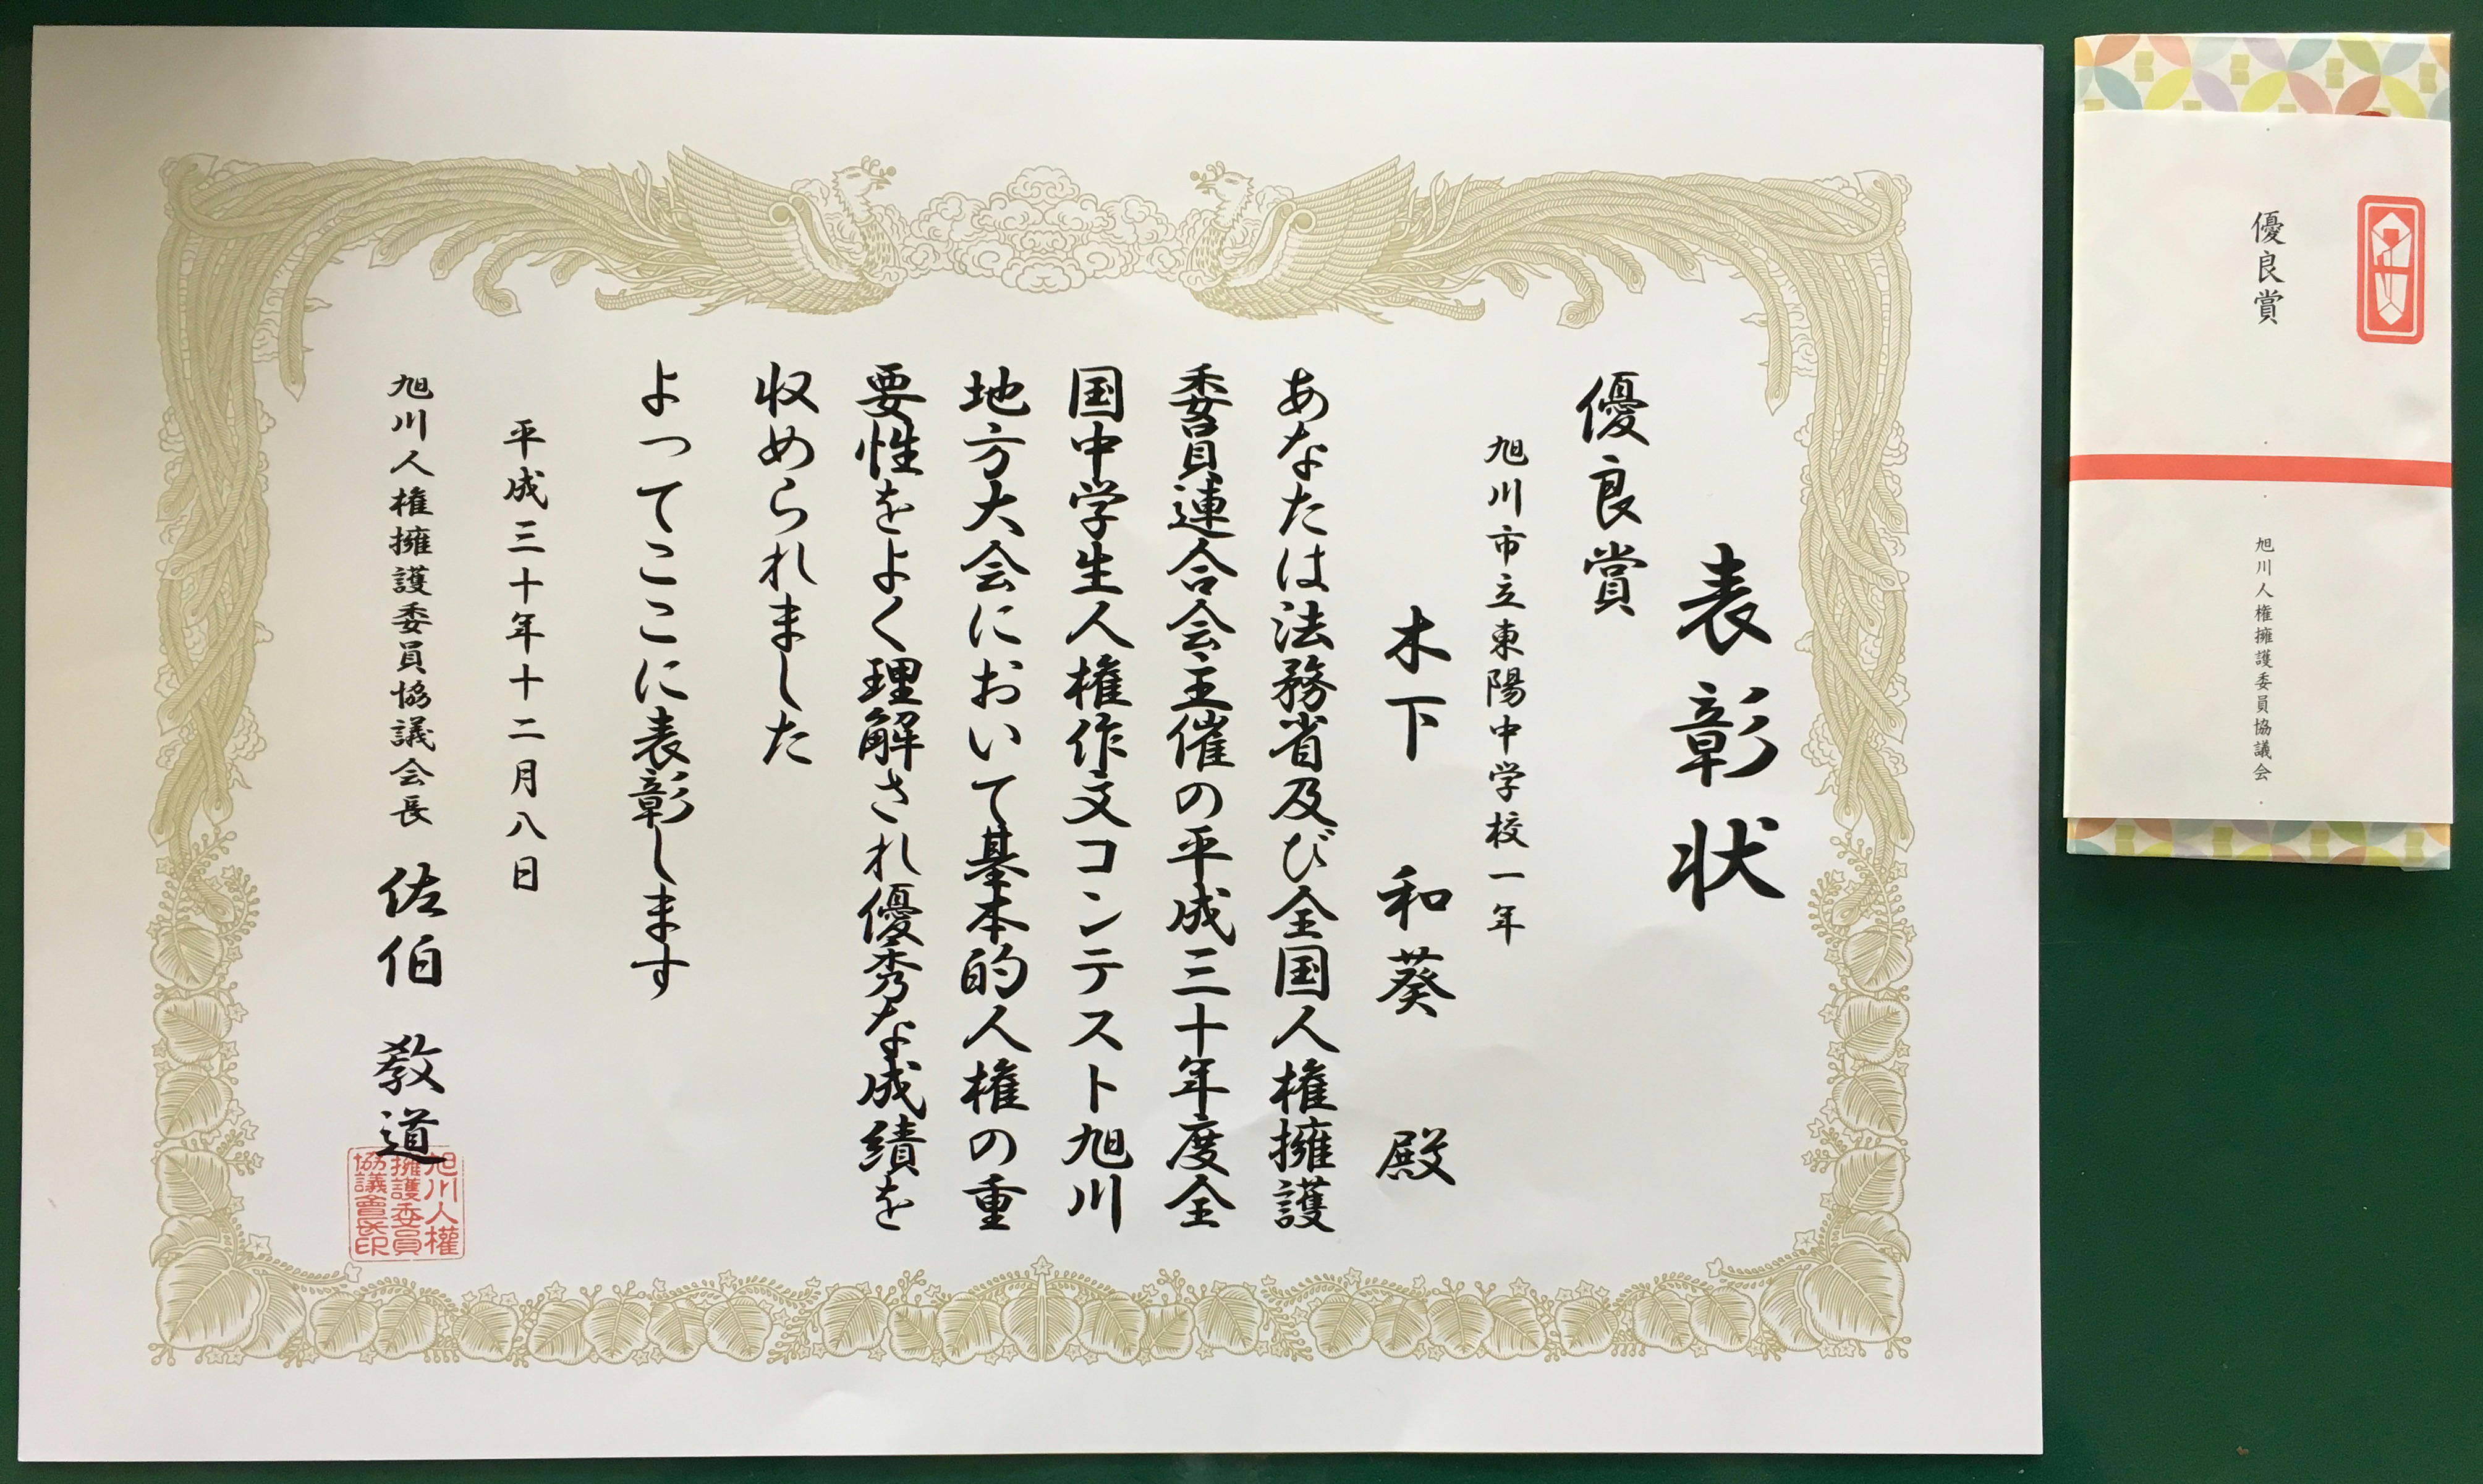 表彰状
優良賞
旭川市立東陽中学校一年
木下 和葵 殿
あなたは法務省及び全国人権擁護
委員連合会主催の平成三十年度全
国中学生人権作文コンテスト旭川
地方大会において基本的人権の重
要性をよく理解され優秀な成績を
収められました
よってここに表彰します
平成三十年十二月八日
旭川人権擁護委員協議会長 佐伯 教道
旭川人權
擁護委員
協議會長印
優良賞
旭川人権擁護委員協議会